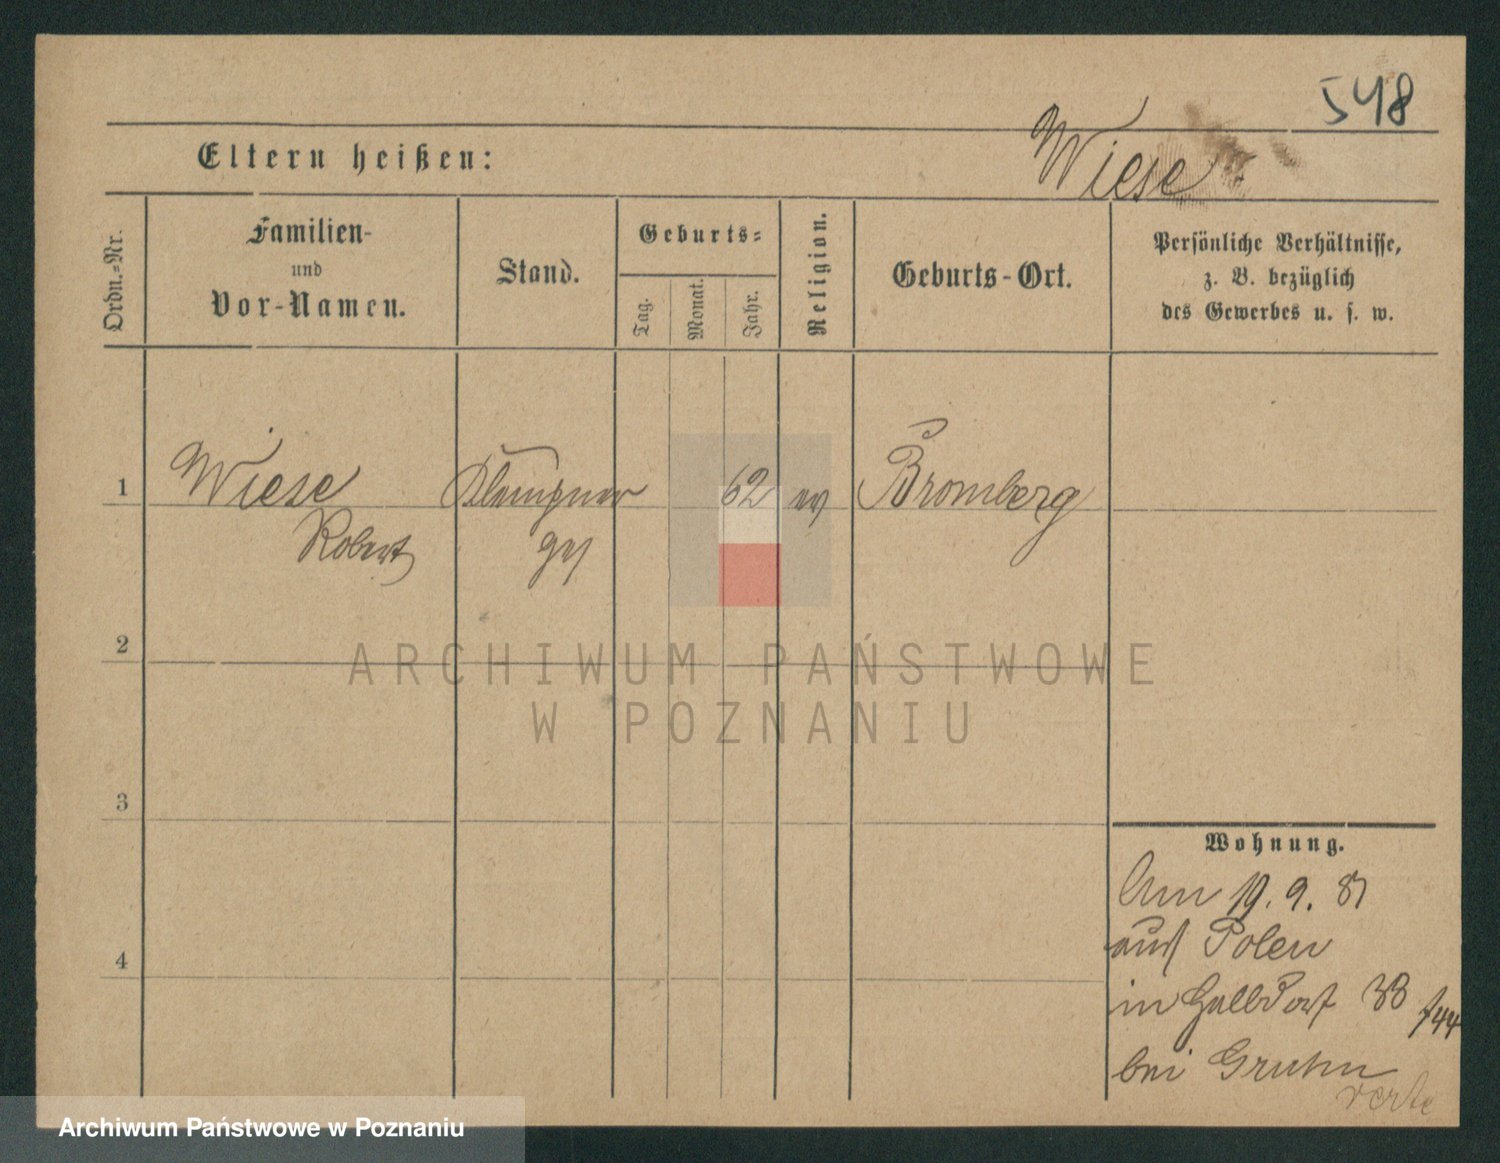 548
Eltern heißen:
Wiese
Ordn.-Nr.
Familien-
und
Vor-Namen.
Stand.
Geburts-
Tag.
Monat.
Jahr.
Religion.
Geburts-Ort.
Persönliche Verhältnisse,
z. B. bezüglich
des Gewerbes u. s. w.
1
Wiese
Robert
Klempner
ges
62
ev
Bromberg
2
ARCHIWUM PAŃSTWOWE
W POZNANIU
3
4
Wohnung.
Am 19. 9. 81
aus Polen
in Halbdorf 33
f 44
bei Gruhn
verte
Archiwum Państwowe w Poznaniu